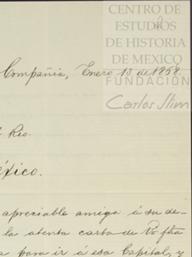 CENTRO DE
ESTUDIOS
DE HISTORIA
DE MEXICO
FUNDACIÓN
Carlos Slim
Compañia, Enero 13 de 1
Rio.
éxico.
apreciable amigo á su de-
la atenta carta de
a para ir á esa Capital, y